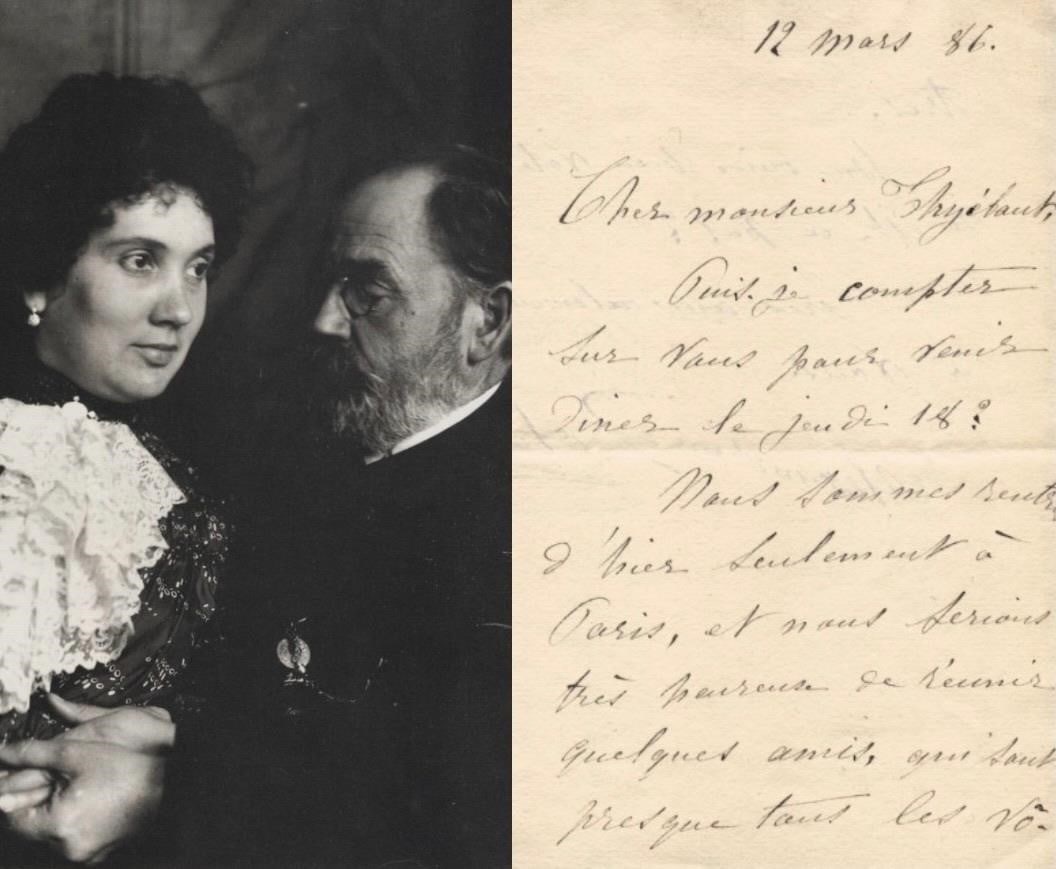 12 mars 86.
Cher monsieur Thyébaut,
Puis-je compter
sur vous pour venir
diner le jeudi 18?
Nous sommes rentr
d'hier seulement à
Paris, et nous serions
très heureux de réunir
quelques amis, qui sont
presque tous les vô-